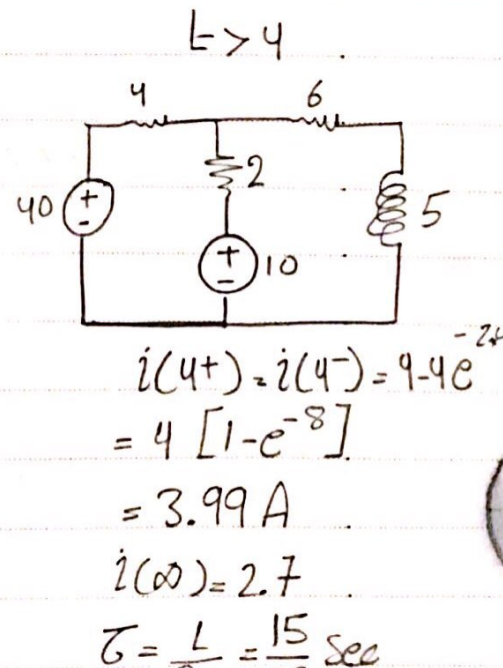 t > 4
4 6
2
40 + - 5
+ - 10
i(4+) = i(4-) = 4-4e^-2t
= 4 [1-e^-8]
= 3.99 A
i(∞) = 2.7
τ = L = 15 sec